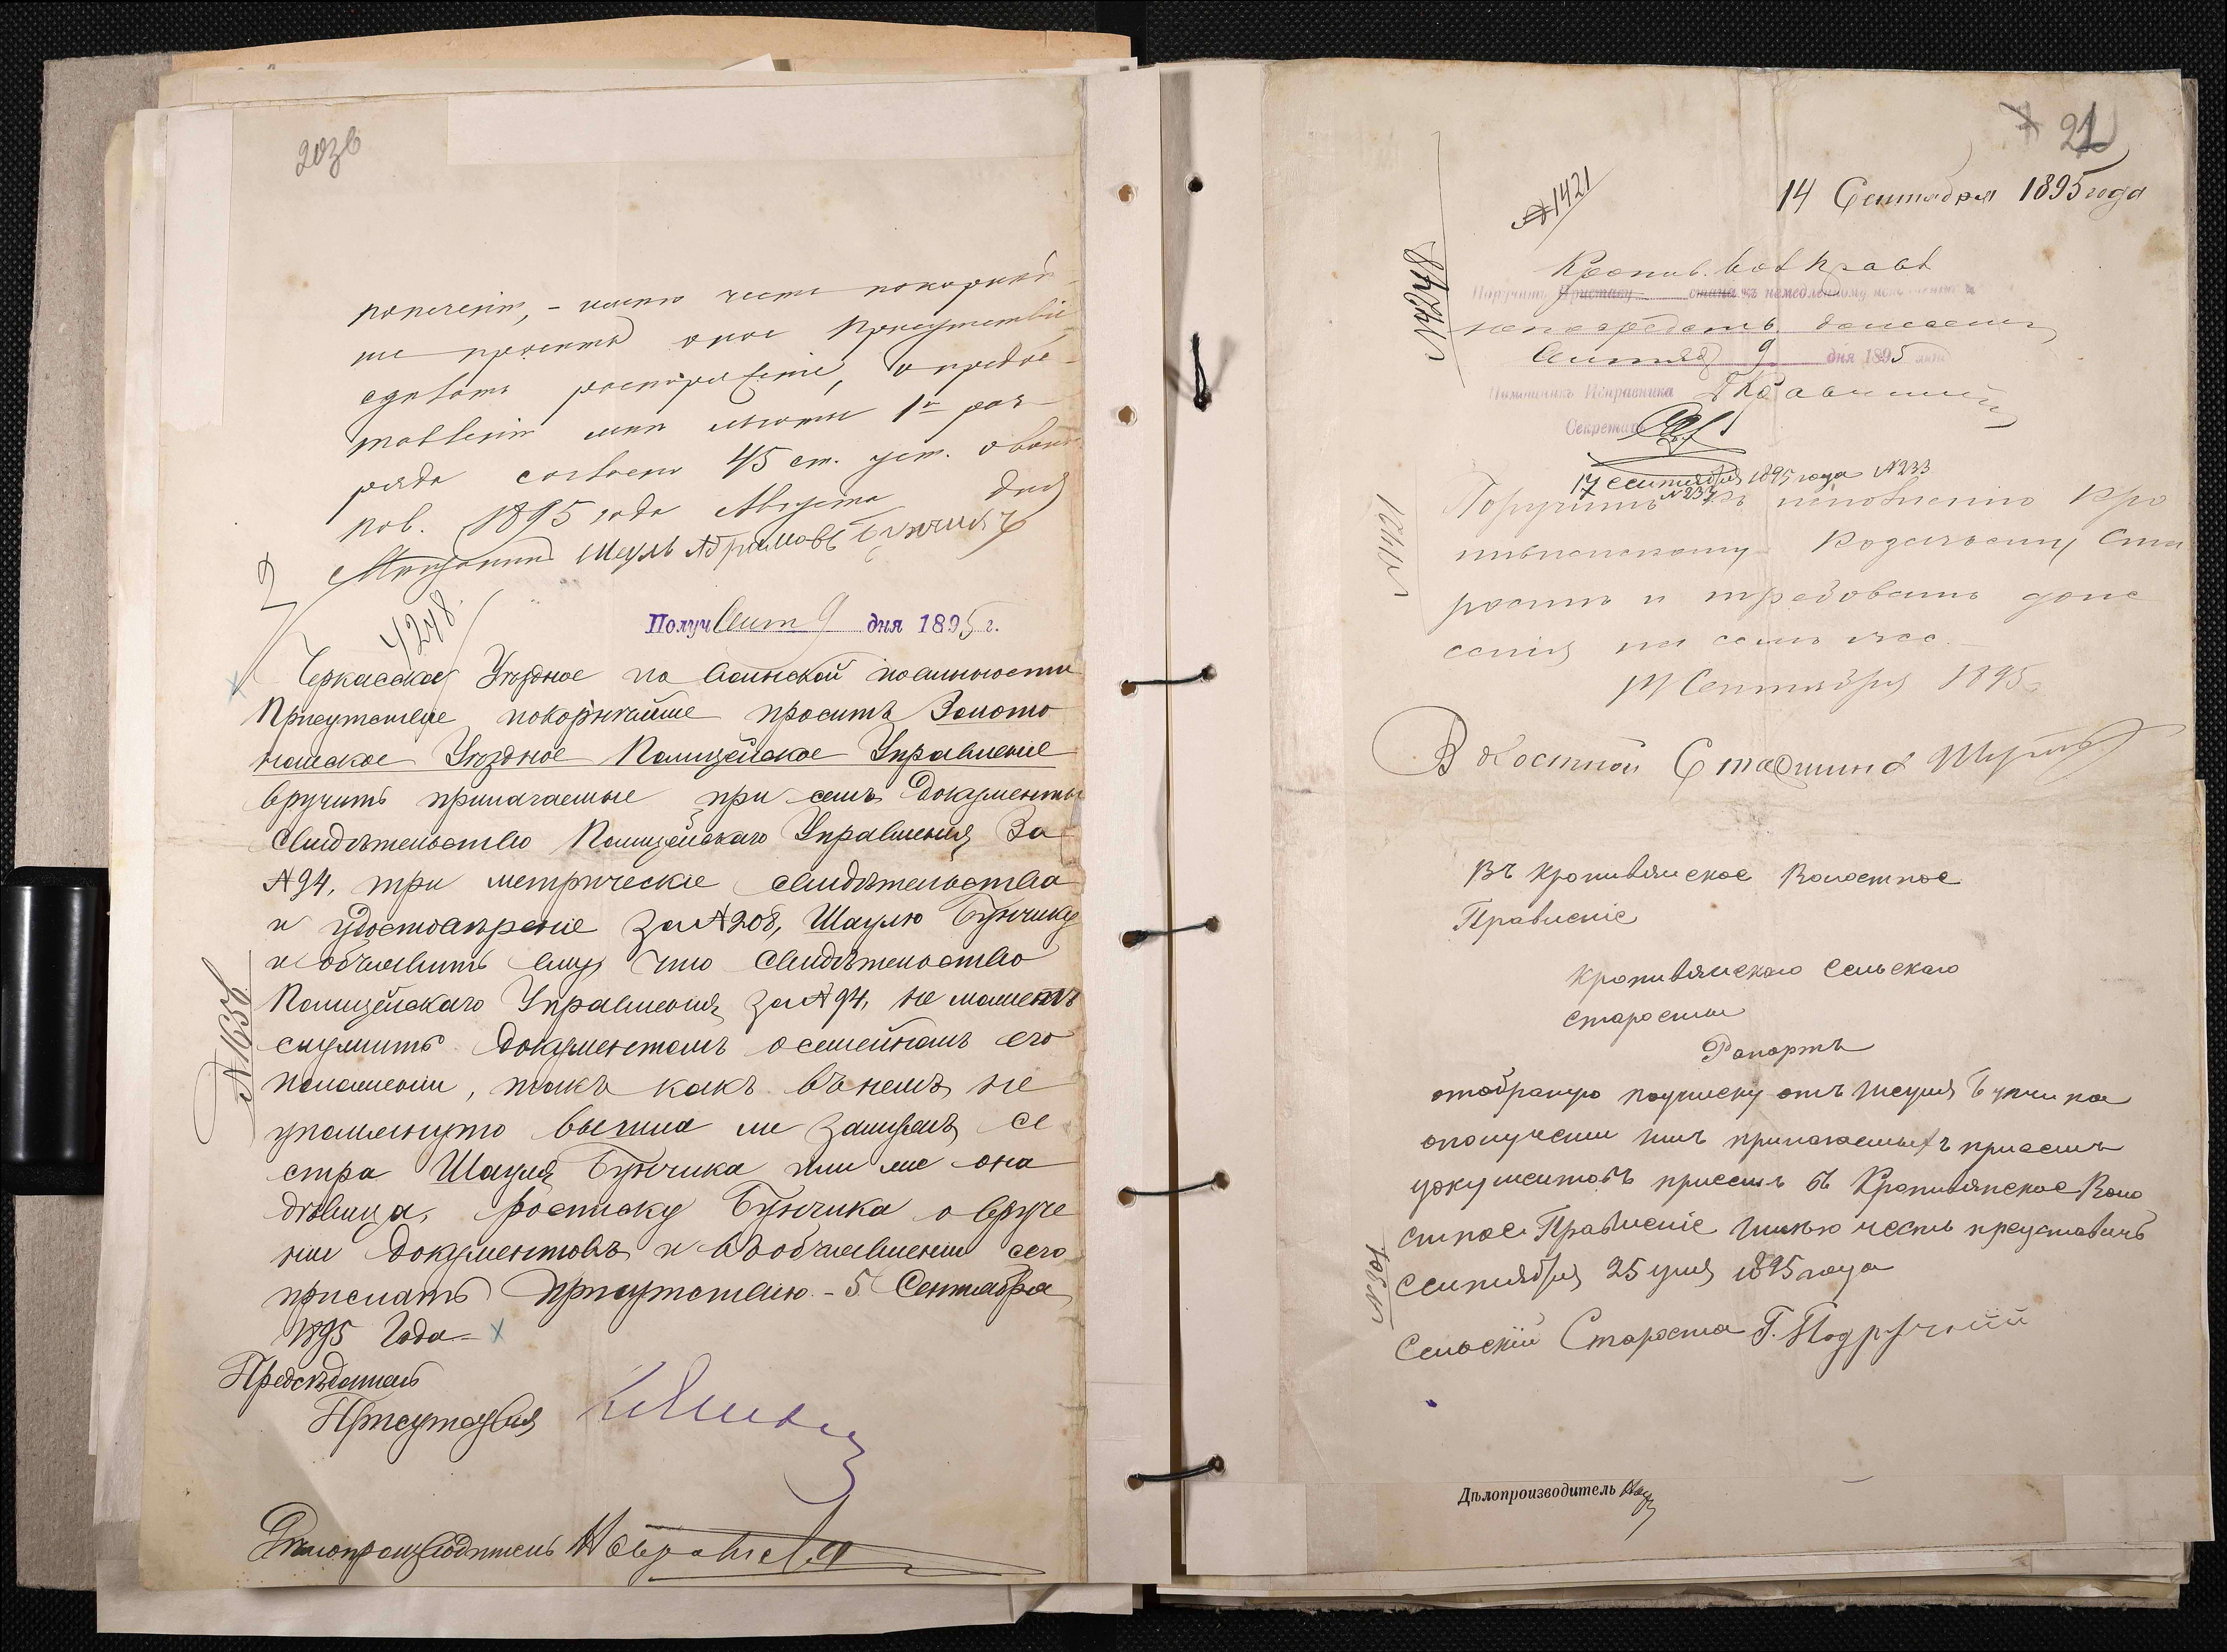 20зв
попеченіи, – имею честь покорнѣй
ше просить оное Присутствіе
сдѣлать распоряженіе, о предос-
тавленіи мнѣ льготы 1го раз-
ряда согласно 45 ст. уст. о воин.
пов. 1895 года Августа дня
Мѣщанинъ Шауль Абрамовъ Бунчикъ
4248
Получ Сент 9 дня 1895 г.
Черкасское Уѣздное по воинской повинности
Присутствіе покорнѣйше проситъ Золото
ношское Уѣздное Полицейское Управленіе
вручить прилагаемые при семъ документы
Свидѣтельство Полицейскаго Управленія За
№ 94, три метрическіе свидѣтельства
и удостовѣреніе за № 208, Шаулю Бунчику
и объявить ему что Свидѣтельство
Полицейскаго Управленія за № 94, не можетъ
служить документомъ о семейномъ его
положеніи, такъ какъ въ немъ не
упомянуто вышла ли замужъ се
стра Шауля Бунчика или же она
дѣвица. Росписку Бунчика о вруче
ніи документовъ и въ объявленіи сего
прислать Присутствію. – 5 Сентября
1895 Года –
№ 1656
Предсѣдатель
Присутствія
Дѣлопроизводитель
21
14 Сентября 1895 года
№ 1421
№ 4248
Кропив. Вол Правл
Поручить Приставу стана къ немедленному
непосредств. донесенію
Сентября 9 дня 1895 года
Помощникъ Исправника
Секретарь
17 Сентября 1895 года № 233
Поручить къ исполненію Кро
пивянскому Козачьему Ста
ростѣ и требовать доне
сенія на семъ же.
14 Сентября 1895 г.
№ 1421
Волостной Старшина
Въ Кропивянское Волостное
Правленіе
Кропивянскаго Сельскаго
Старосты
Рапортъ
отобраную подписку отъ Шауля Бунчика
ополученіи имъ прилагаемыхъ присемъ
документовъ присемъ въ Кропивянское Воло
стное Правленіе имѣю честь представить
Сентября 25 дня 1895 года
№ 301
Сельскій Староста Г. Подручній
Дѣлопроизводитель